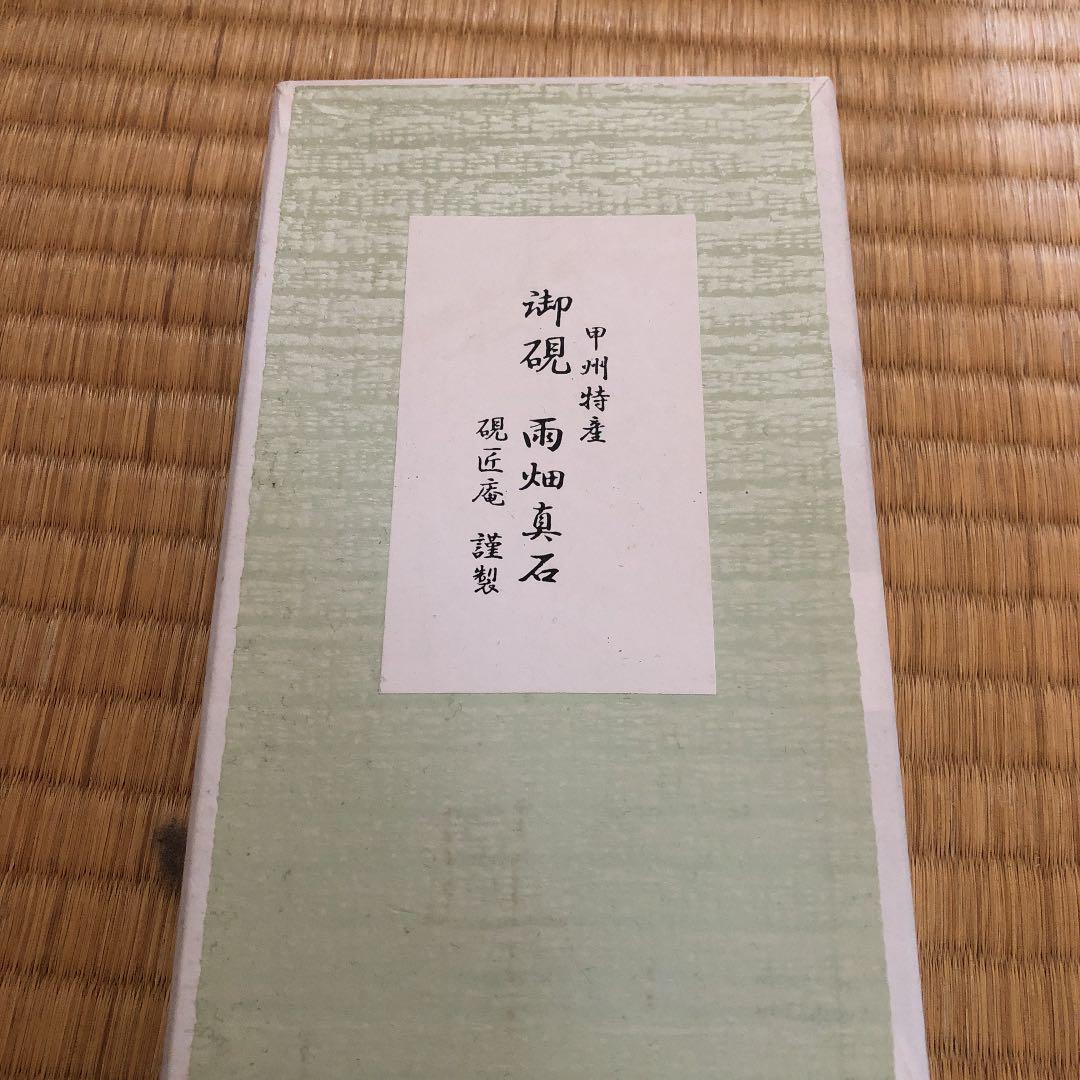 甲州特産
御硯 雨畑真石
硯匠庵 謹製